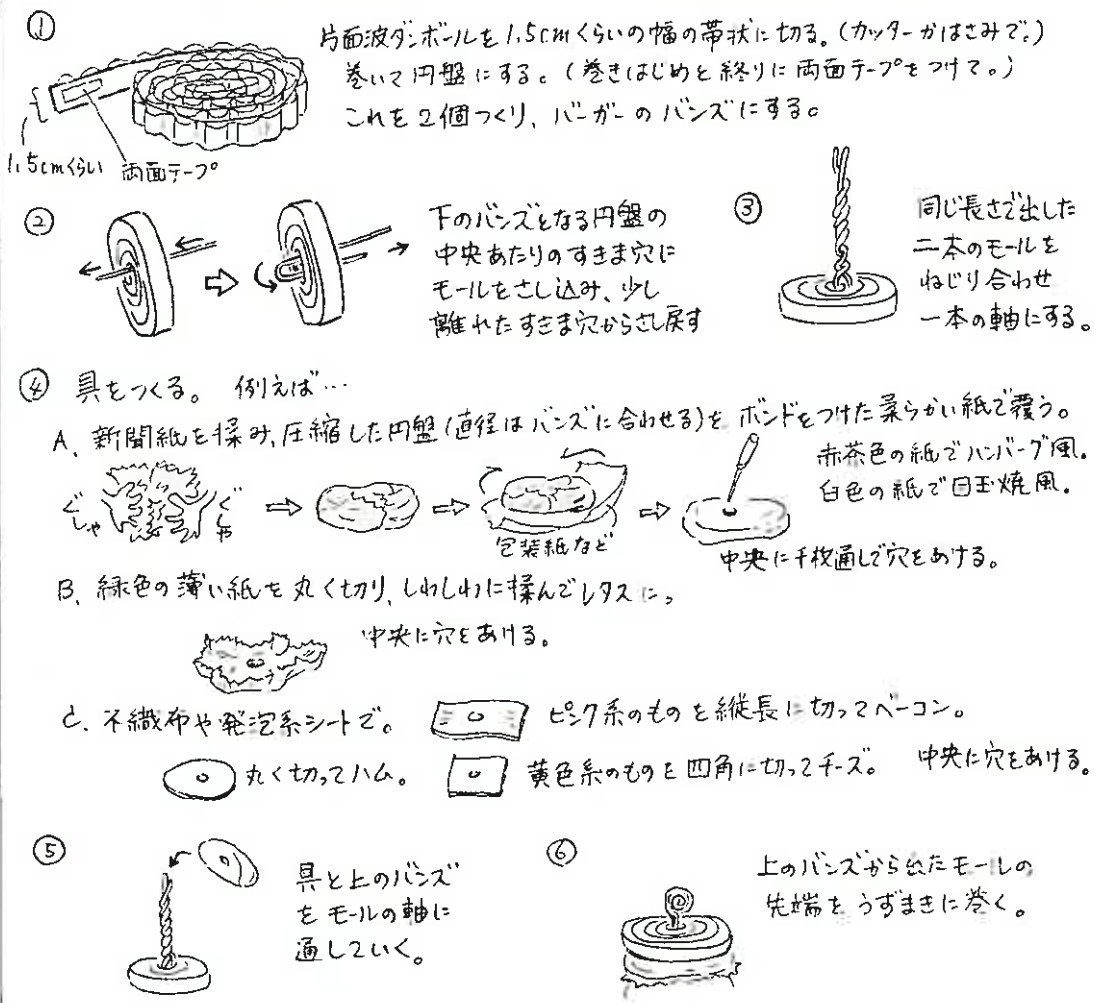 ①
片面波ダンボールを1.5cmくらいの幅の帯状に切る。(カッターかはさみで。)
巻いて円盤にする。(巻きはじめと終りに両面テープをつけて。)
これを2個つくり、バーガーのバンズにする。
1.5cmくらい 両面テープ
②
下のバンズとなる円盤の
中央あたりのすきま穴に
モールをさし込み、少し
離れたすきま穴からさし戻す
③
同じ長さで出した
二本のモールを
ねじり合わせ
一本の軸にする。
④ 具をつくる。 例えば…
A. 新聞紙を揉み、圧縮した円盤(直径はバンズに合わせる)を ボンドをつけた柔らかい紙で覆う。
赤茶色の紙でハンバーグ風。
白色の紙で目玉焼風。
ぐしゃ ぐしゃ
包装紙など
中央に千枚通しで穴をあける。
B. 緑色の薄い紙を丸く切り、しわしわに揉んでレタスに。
中央に穴をあける。
C. 不織布や発泡系シートで。 ピンク系のものを縦長に切ってベーコン。
丸く切ってハム。 黄色系のものを四角に切ってチーズ。 中央に穴をあける。
⑤
具と上のバンズ
をモールの軸に
通していく。
⑥
上のバンズから出たモールの
先端をうずまきに巻く。